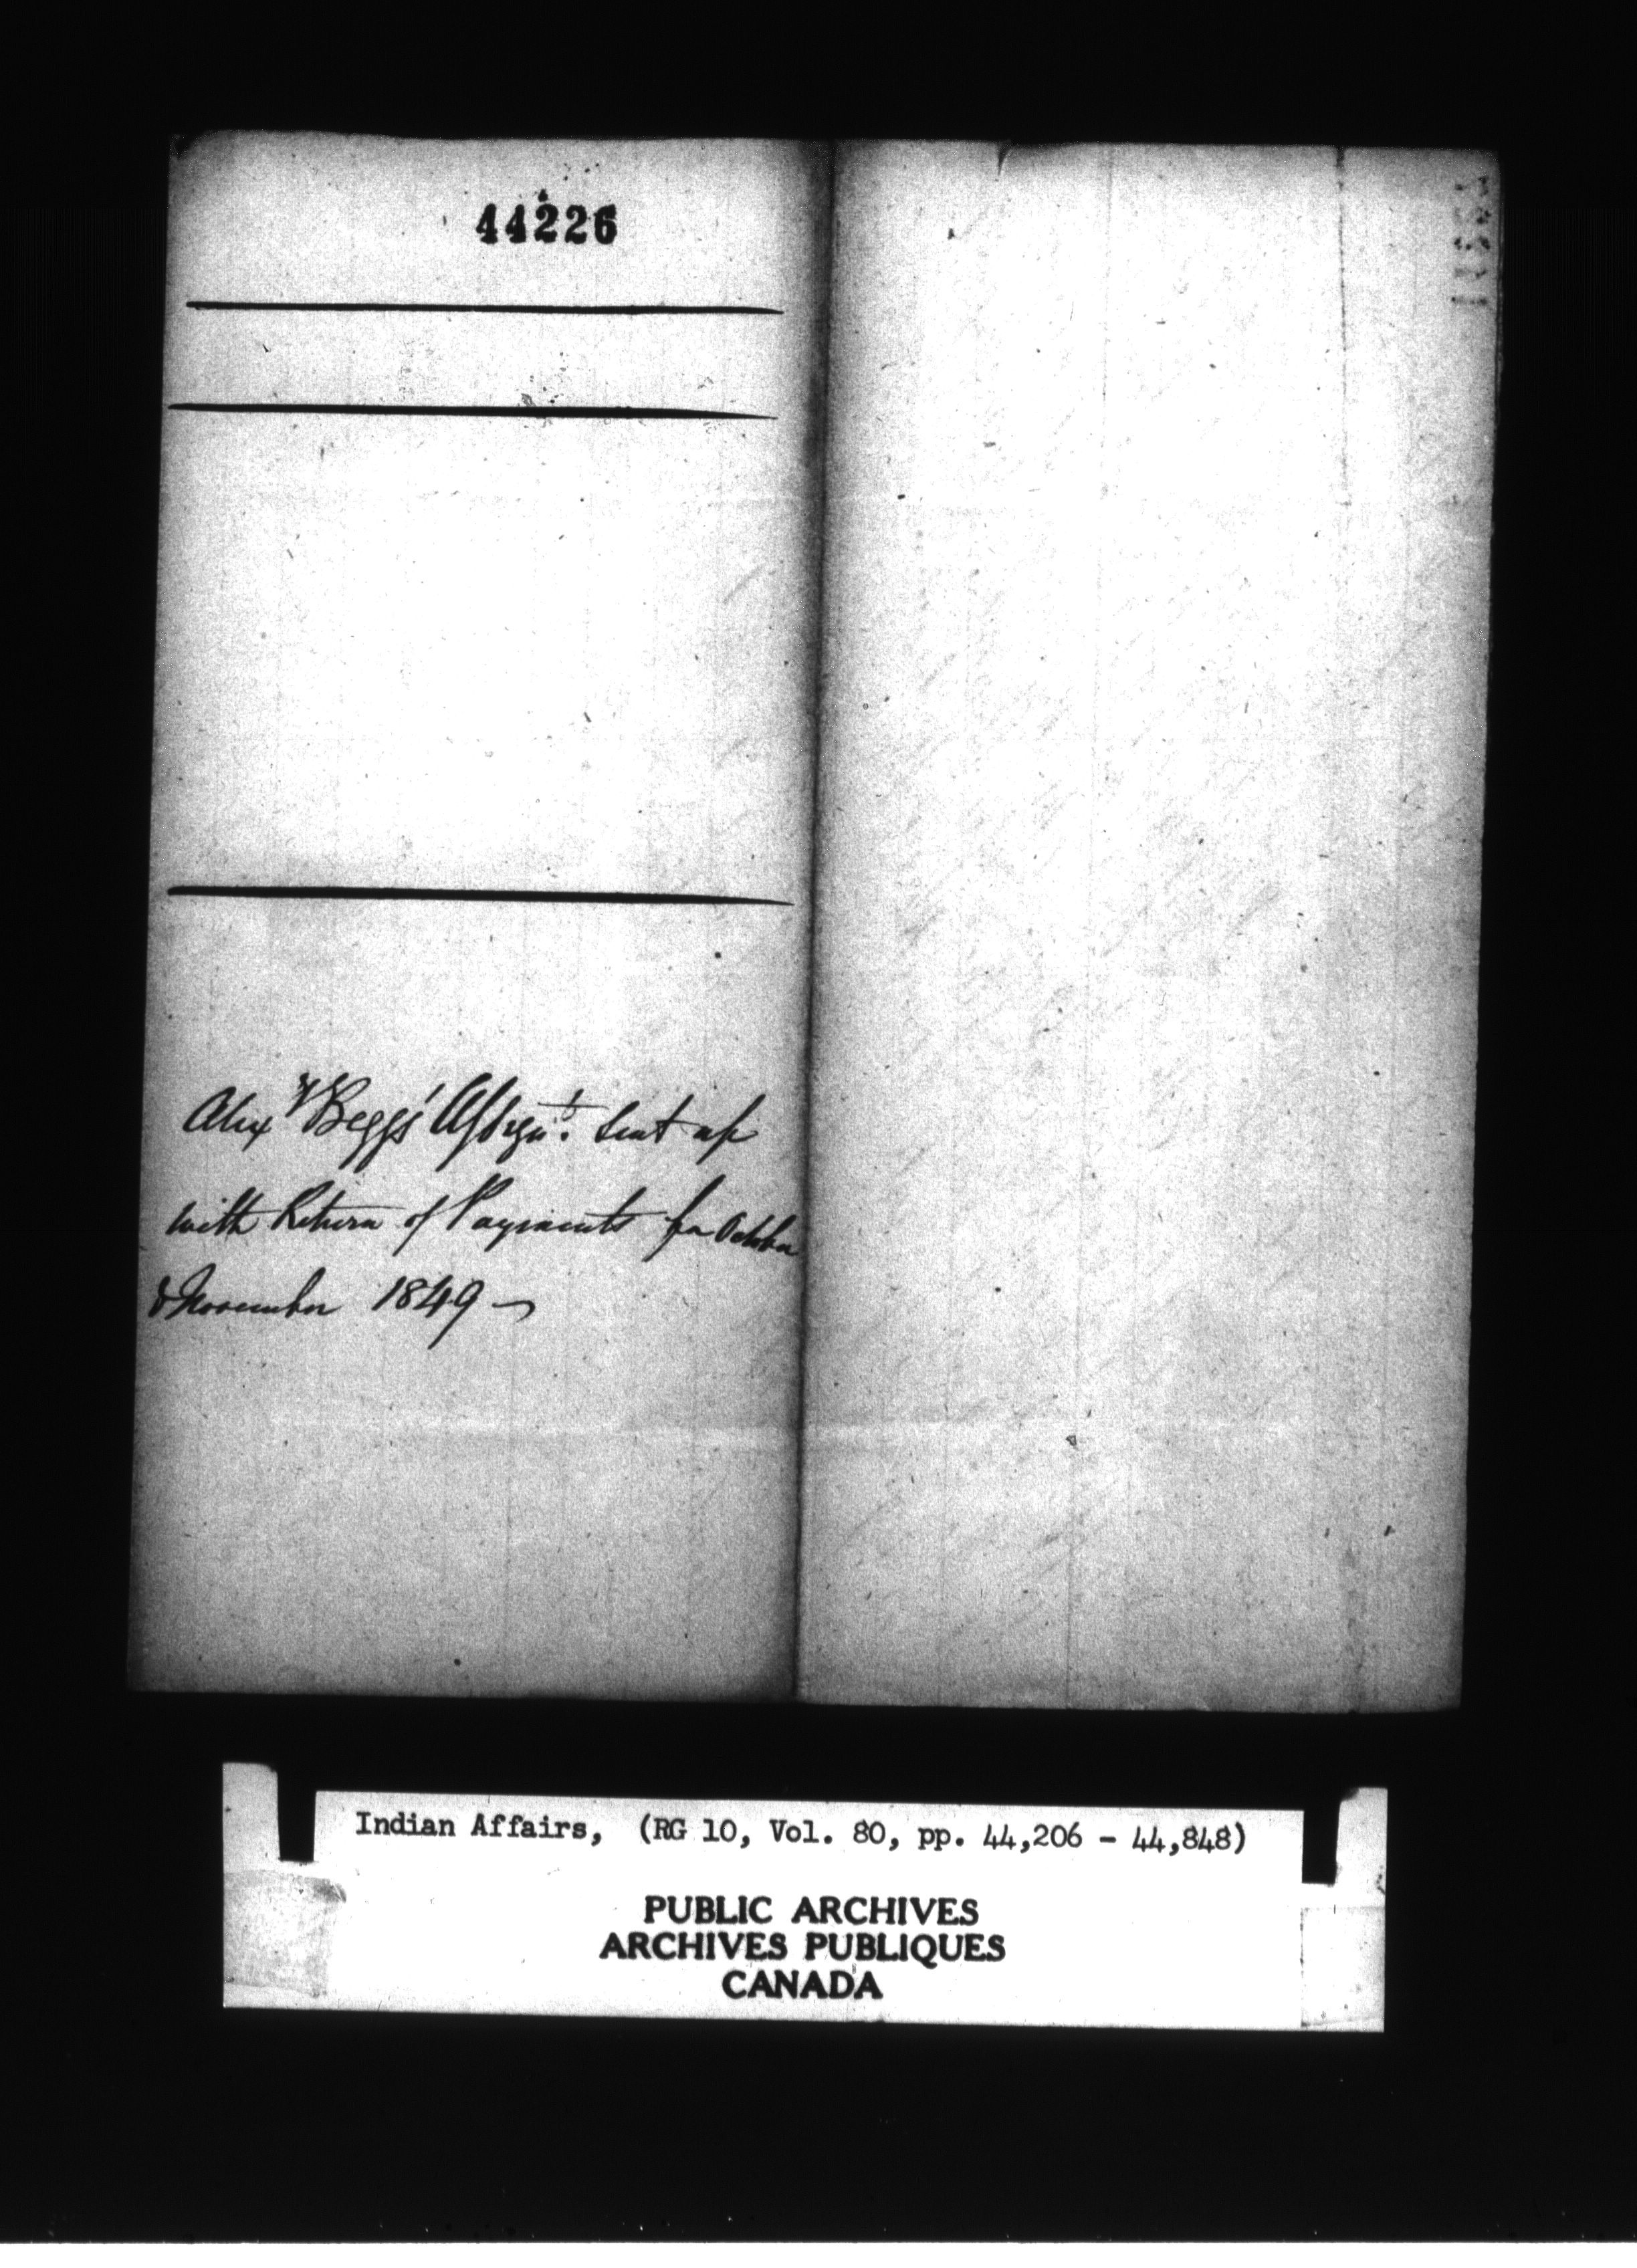 44226
Alexr Beggs' Assignt. sent up
with Return of Payments for October
& November 1849 —
Indian Affairs, (RG 10, Vol. 80, pp. 44,206 - 44,848)
PUBLIC ARCHIVES
ARCHIVES PUBLIQUES
CANADA